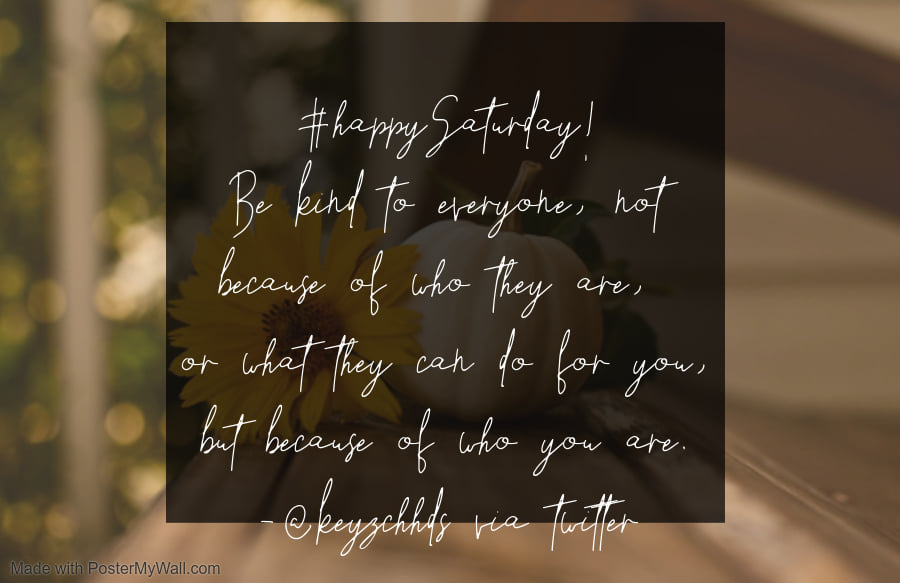 #happySaturday!
Be kind to everyone, not
because of who they are,
or what they can do for you,
but because of who you are.
-@keyzchhds via twitter
Made with PosterMyWall.com